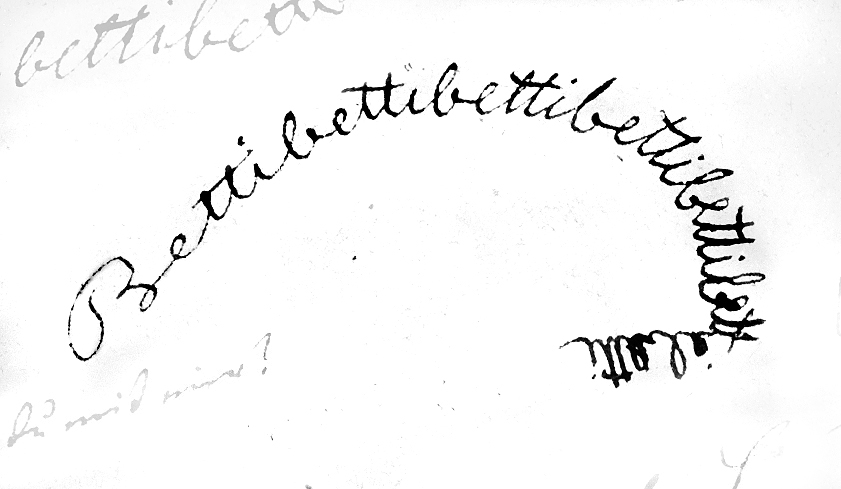 bettibetti
Bettibettibettibettibettibettibetti
du mit mir?